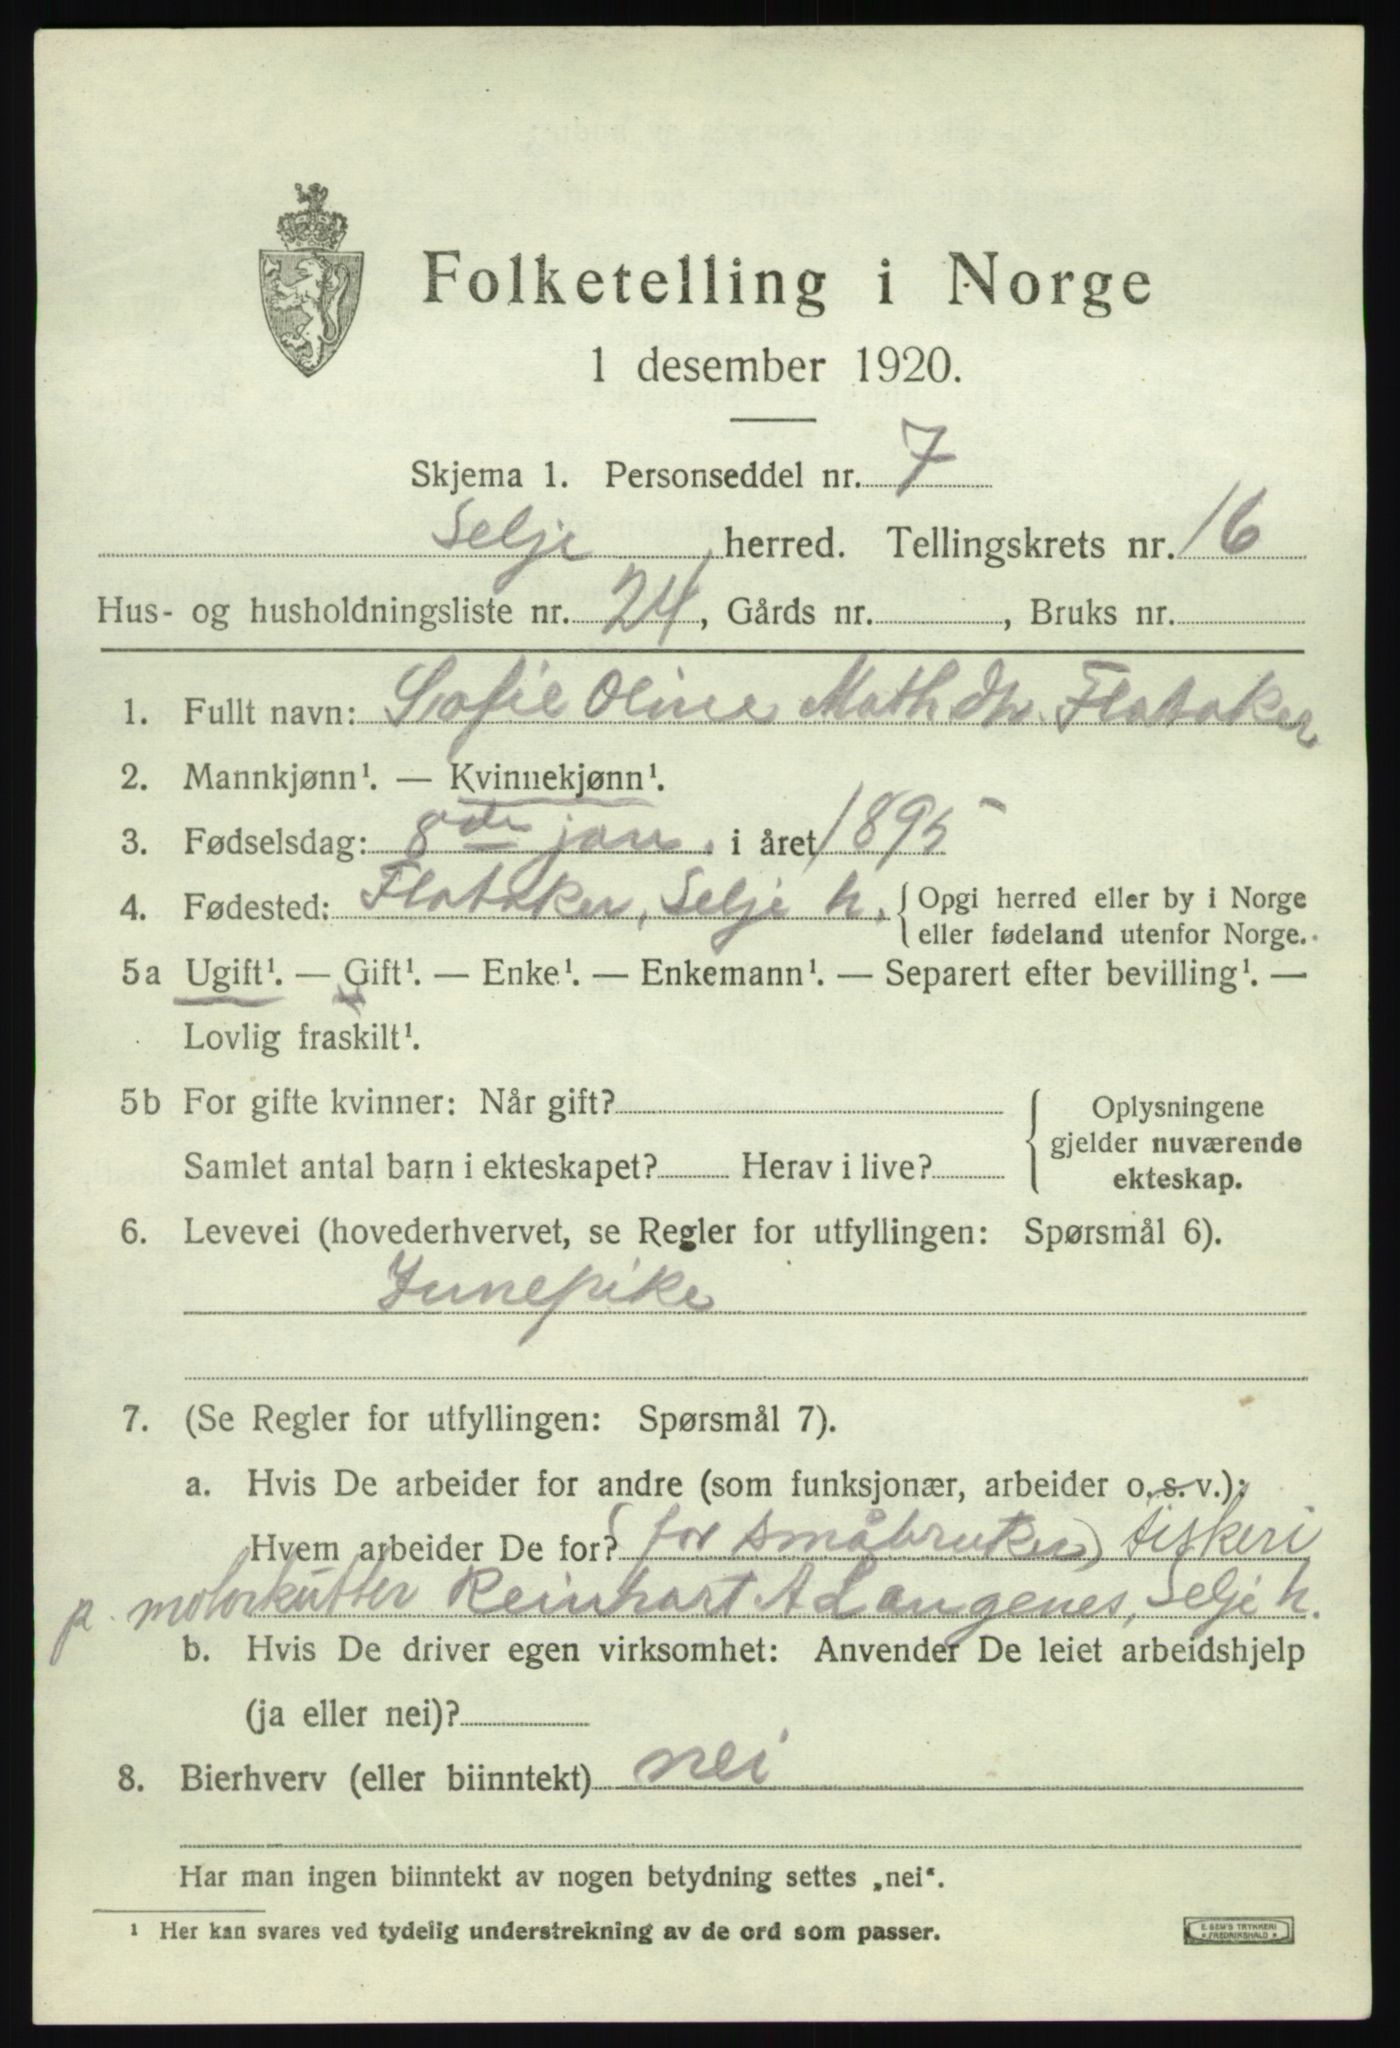 Folketelling i Norge
1 desember 1920.
Skjema 1. Personseddel nr. 7
Selje herred. Tellingskrets nr. 16
Hus- og husholdningsliste nr. 24, Gårds nr. , Bruks nr.
1. Fullt navn: Sofie Oline Flataker
2. Mannkjønn¹. — Kvinnekjønn¹.
3. Fødselsdag: 8de jan. i året 1895
4. Fødested: Flataker, Selje h. { Opgi herred eller by i Norge
eller fødeland utenfor Norge.
5a Ugift¹. — Gift¹. — Enke¹. — Enkemann¹. — Separert efter bevilling¹. —
Lovlig fraskilt¹.
5b For gifte kvinner: Når gift?
Samlet antal barn i ekteskapet? Herav i live?
{ Oplysningene
gjelder nuværende
ekteskap.
6. Levevei (hovederhvervet, se Regler for utfyllingen: Spørsmål 6).
Junepike
7. (Se Regler for utfyllingen: Spørsmål 7).
a. Hvis De arbeider for andre (som funksjonær, arbeider o. s. v.):
Hvem arbeider De for? (for småbruker) fiskeri
p. motorkutter Reinhart A Langenes, Selje h.
b. Hvis De driver egen virksomhet: Anvender De leiet arbeidshjelp
(ja eller nei)?
8. Bierhverv (eller biinntekt) nei
Har man ingen biinntekt av nogen betydning settes „nei“.
¹ Her kan svares ved tydelig understrekning av de ord som passer.
E. SEM'S TRYKKERI
* FREDRIKSHALD *